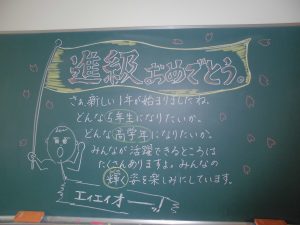 進級おめでとう。
さぁ、新しい1年が始まりましたね。
どんな5年生になりたいか。
どんな高学年になりたいか。
みんなが活躍できるところは
たくさんありますよ。みんなの
輝く姿を楽しみにしています。
エイエイオー!